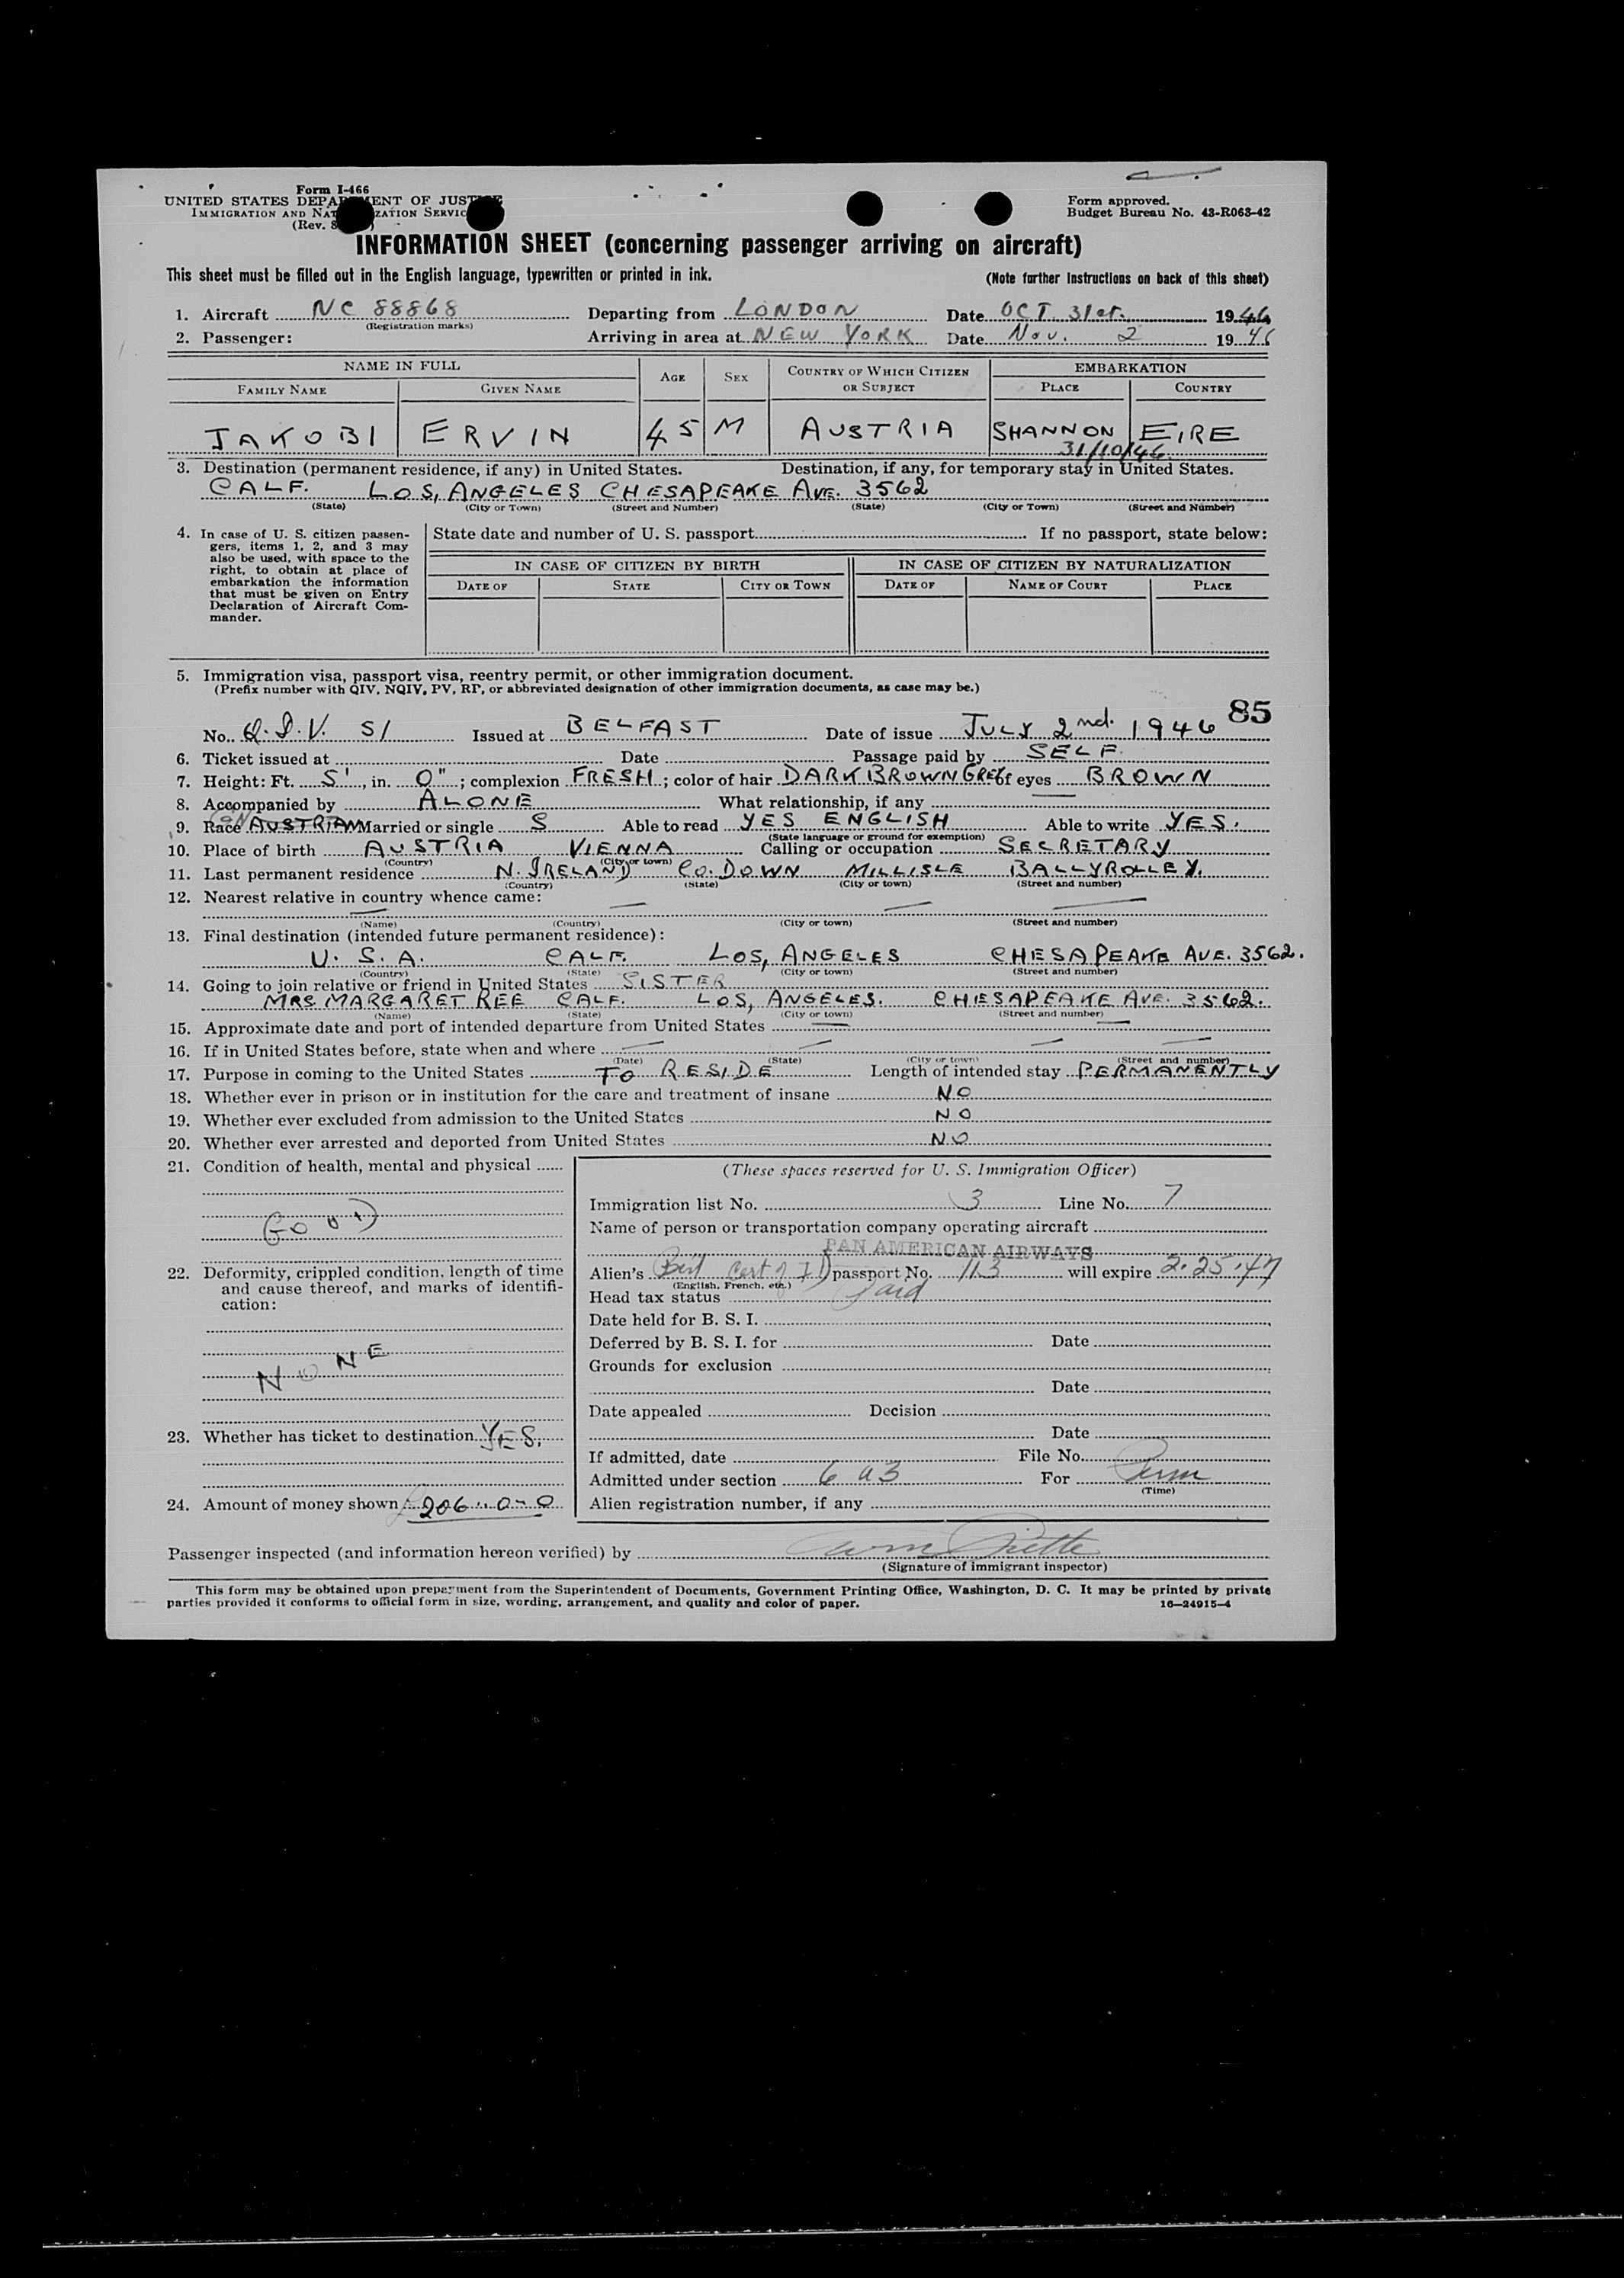 Form I-466
UNITED STATES DEPARTMENT OF JUSTICE
IMMIGRATION AND NATURALIZATION SERVICE
(Rev. 8
Form approved.
Budget Bureau No. 43-R063-42
INFORMATION SHEET (concerning passenger arriving on aircraft)
This sheet must be filled out in the English language, typewritten or printed in ink. (Note further instructions on back of this sheet)
1. Aircraft NC 88868 Departing from LONDON Date OCT. 31st. 1946
(Registration marks)
2. Passenger: Arriving in area at NEW YORK Date Nov. 2 1946
NAME IN FULL AGE SEX COUNTRY OF WHICH CITIZEN OR SUBJECT EMBARKATION
FAMILY NAME GIVEN NAME PLACE COUNTRY
JAKOBI ERVIN 45 M AUSTRIA SHANNON EIRE
31/10/46
3. Destination (permanent residence, if any) in United States. Destination, if any, for temporary stay in United States.
CALF. LOS, ANGELES CHESAPEAKE AVE. 3562
(State) (City or Town) (Street and Number) (State) (City or Town) (Street and Number)
4. In case of U. S. citizen passen-
gers, items 1, 2, and 3 may
also be used, with space to the
right, to obtain at place of
embarkation the information
that must be given on Entry
Declaration of Aircraft Com-
mander.
State date and number of U. S. passport If no passport, state below:
IN CASE OF CITIZEN BY BIRTH IN CASE OF CITIZEN BY NATURALIZATION
DATE OF STATE CITY OR TOWN DATE OF NAME OF COURT PLACE
5. Immigration visa, passport visa, reentry permit, or other immigration document.
(Prefix number with QIV, NQIV, PV, RP, or abbreviated designation of other immigration documents, as case may be.)
85
No. Q.I.V. 51 Issued at BELFAST Date of issue JULY 2nd. 1946
6. Ticket issued at Date Passage paid by SELF.
7. Height: Ft. 5', in. 0"; complexion FRESH; color of hair DARK BROWN GREY of eyes BROWN
8. Accompanied by ALONE What relationship, if any
9. Race AUSTRIAN Married or single S Able to read YES ENGLISH Able to write YES.
(State language or ground for exemption)
10. Place of birth AUSTRIA VIENNA Calling or occupation SECRETARY
(Country) (City or town)
11. Last permanent residence N. IRELAND CO. DOWN MILLISLE BALLYROLLEY.
(Country) (State) (City or town) (Street and number)
12. Nearest relative in country whence came:
(Name) (Country) (City or town) (Street and number)
13. Final destination (intended future permanent residence):
U. S. A. CALF. LOS, ANGELES CHESAPEAKE AVE. 3562.
(Country) (State) (City or town) (Street and number)
14. Going to join relative or friend in United States SISTER
MRS. MARGARET REE CALF. LOS, ANGELES. CHESAPEAKE AVE. 3562.
(Name) (State) (City or town) (Street and number)
15. Approximate date and port of intended departure from United States
16. If in United States before, state when and where
(Date) (State) (City or town) (Street and number)
17. Purpose in coming to the United States TO RESIDE Length of intended stay PERMANENTLY
18. Whether ever in prison or in institution for the care and treatment of insane NO
19. Whether ever excluded from admission to the United States NO
20. Whether ever arrested and deported from United States NO
21. Condition of health, mental and physical
GOOD
22. Deformity, crippled condition, length of time
and cause thereof, and marks of identifi-
cation:
NONE
23. Whether has ticket to destination YES.
24. Amount of money shown £206..0-0
(These spaces reserved for U. S. Immigration Officer)
Immigration list No. 3 Line No. 7
Name of person or transportation company operating aircraft
PAN AMERICAN AIRWAYS
Alien's Brit Cert of ID passport No. 113 will expire 2.25.47
(English, French, etc.)
Head tax status Paid
Date held for B. S. I.
Deferred by B. S. I. for Date
Grounds for exclusion
Date
Date appealed Decision
Date
If admitted, date File No.
Admitted under section 6 a3 For Perm
(Time)
Alien registration number, if any
Passenger inspected (and information hereon verified) by
(Signature of immigrant inspector)
This form may be obtained upon prepayment from the Superintendent of Documents, Government Printing Office, Washington, D. C. It may be printed by private
parties provided it conforms to official form in size, wording, arrangement, and quality and color of paper. 16—24915-4